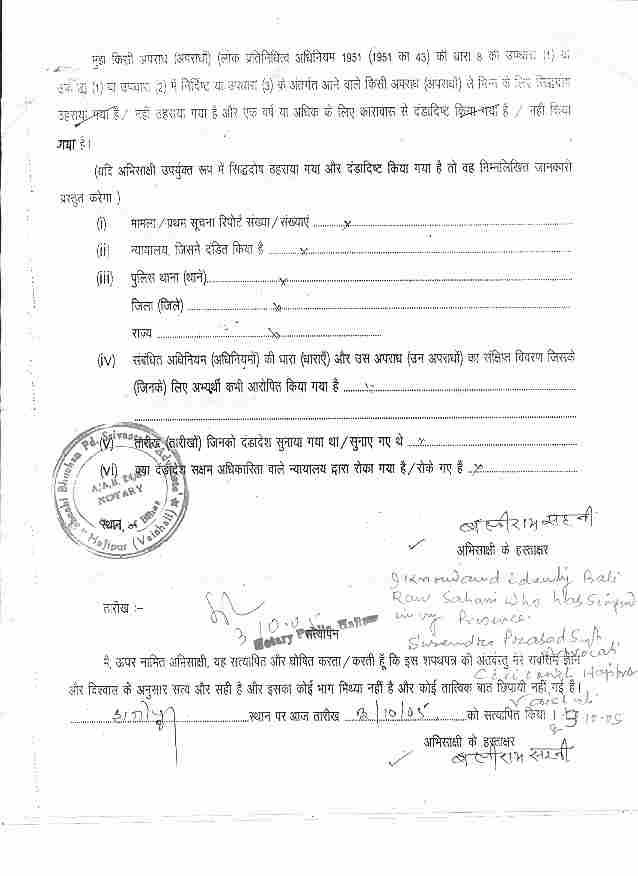 मुझे किसी अपराध (अपराधों) (लोक प्रतिनिधित्व अधिनियम 1951 (1951 का 43) की धारा 8 की उपधारा (1) या
(1) या उपधारा (2) में निर्दिष्ट या उपधारा (3) के अंतर्गत आने वाले किसी अपराध (अपराधों) से भिन्न के लिए सिद्धदोष
ठहराया गया है / नहीं ठहराया गया है और एक वर्ष या अधिक के लिए कारावास से दंडादिष्ट किया गया है / नहीं किया
गया है।
(यदि अभिसाक्षी उपर्युक्त रूप में सिद्धदोष ठहराया गया और दंडादिष्ट किया गया है तो वह निम्नलिखित जानकारी
प्रस्तुत करेगा)
(i) मामला/प्रथम सूचना रिपोर्ट संख्या/संख्याएं x
(ii) न्यायालय, जिसने दंडित किया है x
(iii) पुलिस थाना (थाने) x
जिला (जिले) x
राज्य x
(iv) संबंधित अधिनियम (अधिनियमों) की धारा (धाराएँ) और उस अपराध (उन अपराधों) का संक्षिप्त विवरण जिसके
(जिनके) लिए अभ्यर्थी कभी आरोपित किया गया है
(v) तारीख (तारीखों) जिनको दंडादेश सुनाया गया था/सुनाए गए थे x
(vi) क्या दंडादेश सक्षम अधिकारिता वाले न्यायालय द्वारा रोका गया है/रोके गए हैं x
Shashi Bhushan Pd. Srivastava Advocate
NOTARY
Hajipur (Vaishali)
स्थान
बलीराम सहनी
अभिसाक्षी के हस्ताक्षर
I know and identify Bali
Ram Sahani who has signed
in my Presence.
तारीख :-
3/10/05
Notary Public Hajipur
सत्यापन
Surendra Prasad Singh
Advocate
Civil Court Hajipur
Vaishali
3-10-05
मैं, ऊपर नामित अभिसाक्षी, यह सत्यापित और घोषित करता/करती हूँ कि इस शपथपत्र की अंतर्वस्तु मेरे सर्वोत्तम ज्ञान
और विश्वास के अनुसार सत्य और सही है और इसका कोई भाग मिथ्या नहीं है और कोई तात्विक बात छिपायी नहीं गई है।
हाजीपुर स्थान पर आज तारीख 3/10/05 को सत्यापित किया।
अभिसाक्षी के हस्ताक्षर
बलीराम सहनी